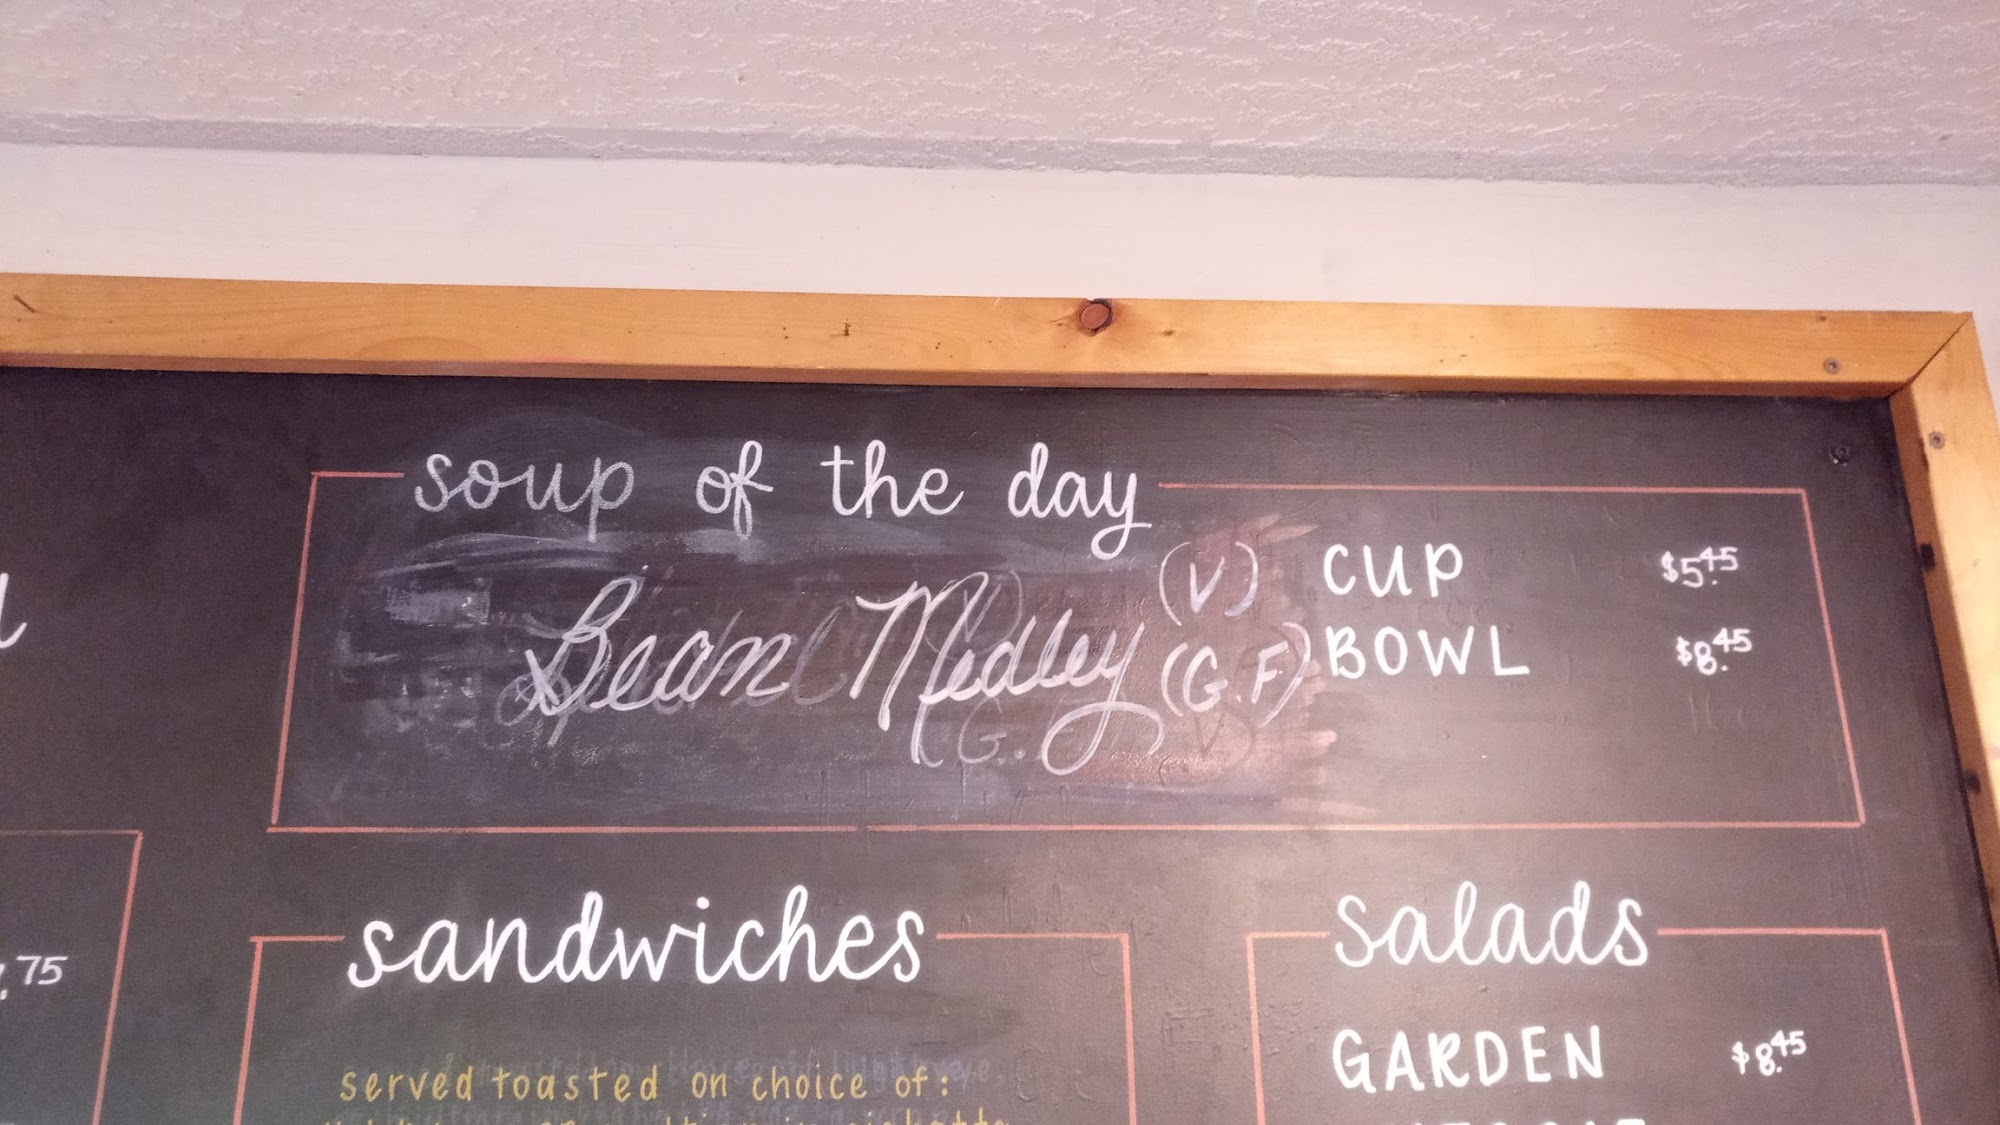 soup of the day
Bean Medley (V) (G.F)
CUP $5.45
BOWL $8.45
.75
sandwiches
served toasted on choice of:
salads
GARDEN $8.45